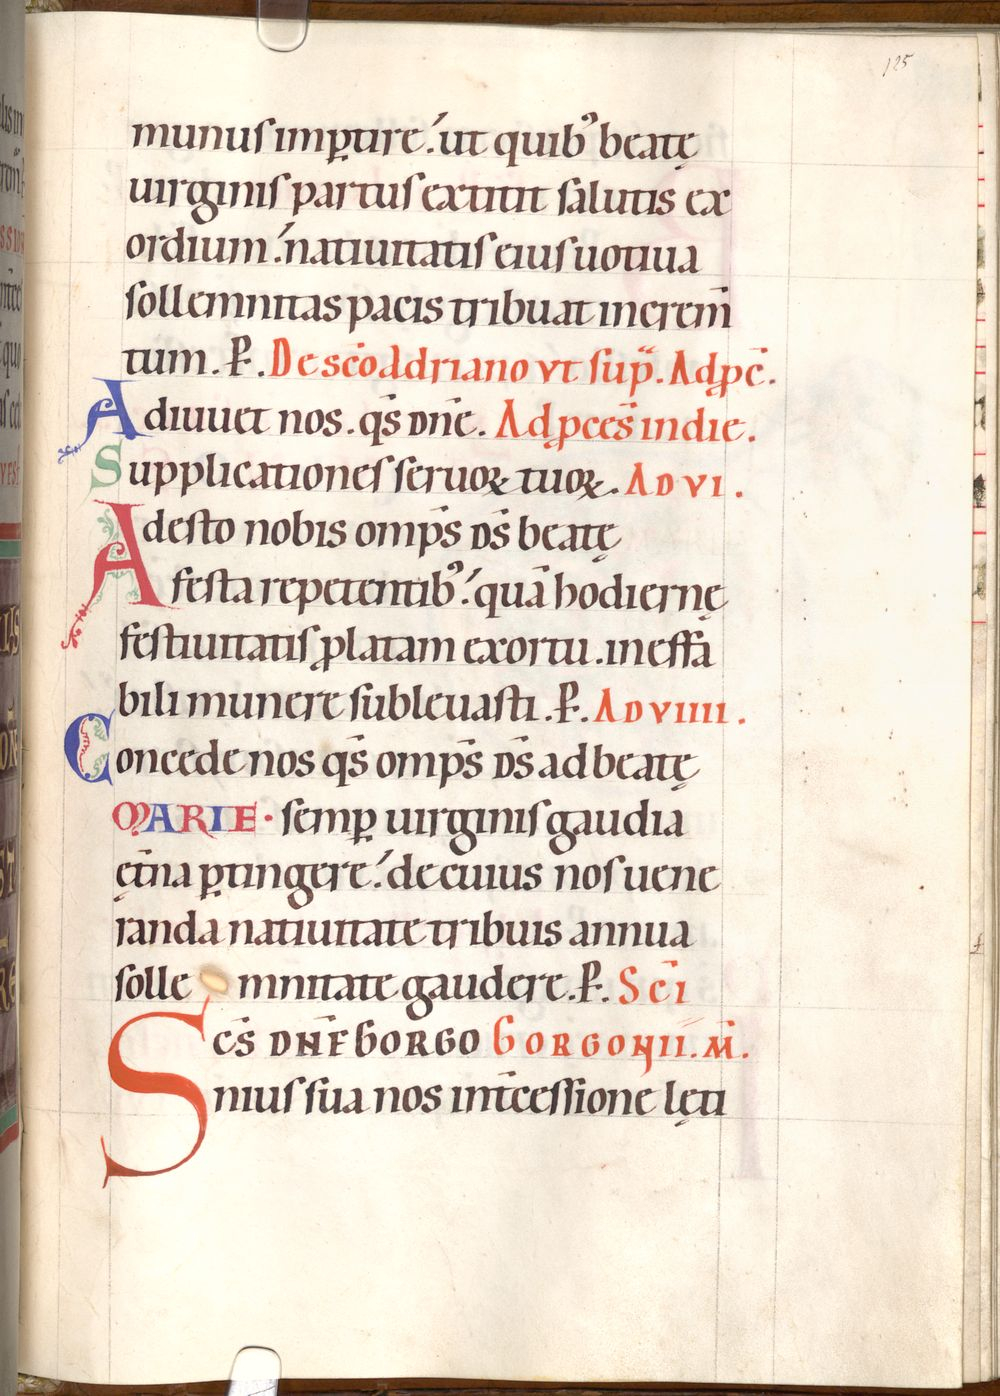 125
munus imꝑtire. ut quibꝰ beatę
uirginis partus extitit salutis ex
ordium. natiuitatis eius uotiua
sollemnitas pacis tribuat increm̄
tum. P̄. De sc̄o Adriano vt sup̄. Ad pc̄.
Adiuuet nos. qs̄ dn̄e. Ad p̄ces̄ in die.
Supplicationes seruoꝝ tuoꝝ. AD VI.
Adesto nobis omp̄s ds̄ beatę
festa repetentibꝰ. quā hodiernę
festiuitatis ꝓlatam exortu. ineffa
bili munere subleuasti. P̄. AD VIIII.
Concede nos qs̄ omp̄s ds̄ ad beatę
MARIE. semꝑ uirginis gaudia
et̄na ꝑtingere. de cuius nos uene
randa natiuitate tribuis annua
solle mnitate gaudere. P̄. Sc̄i
Sc̄s DN̄E GORGO GORGONII. M̄.
nius sua nos int̄cessione lęti